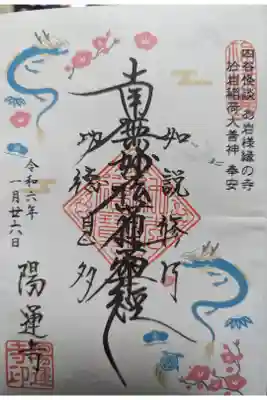 四谷怪談 お岩様縁の寺
於岩稲荷大善神 奉安
如説修行
南無妙法蓮華経
功徳甚多
令和六年
一月廿六日
陽運寺